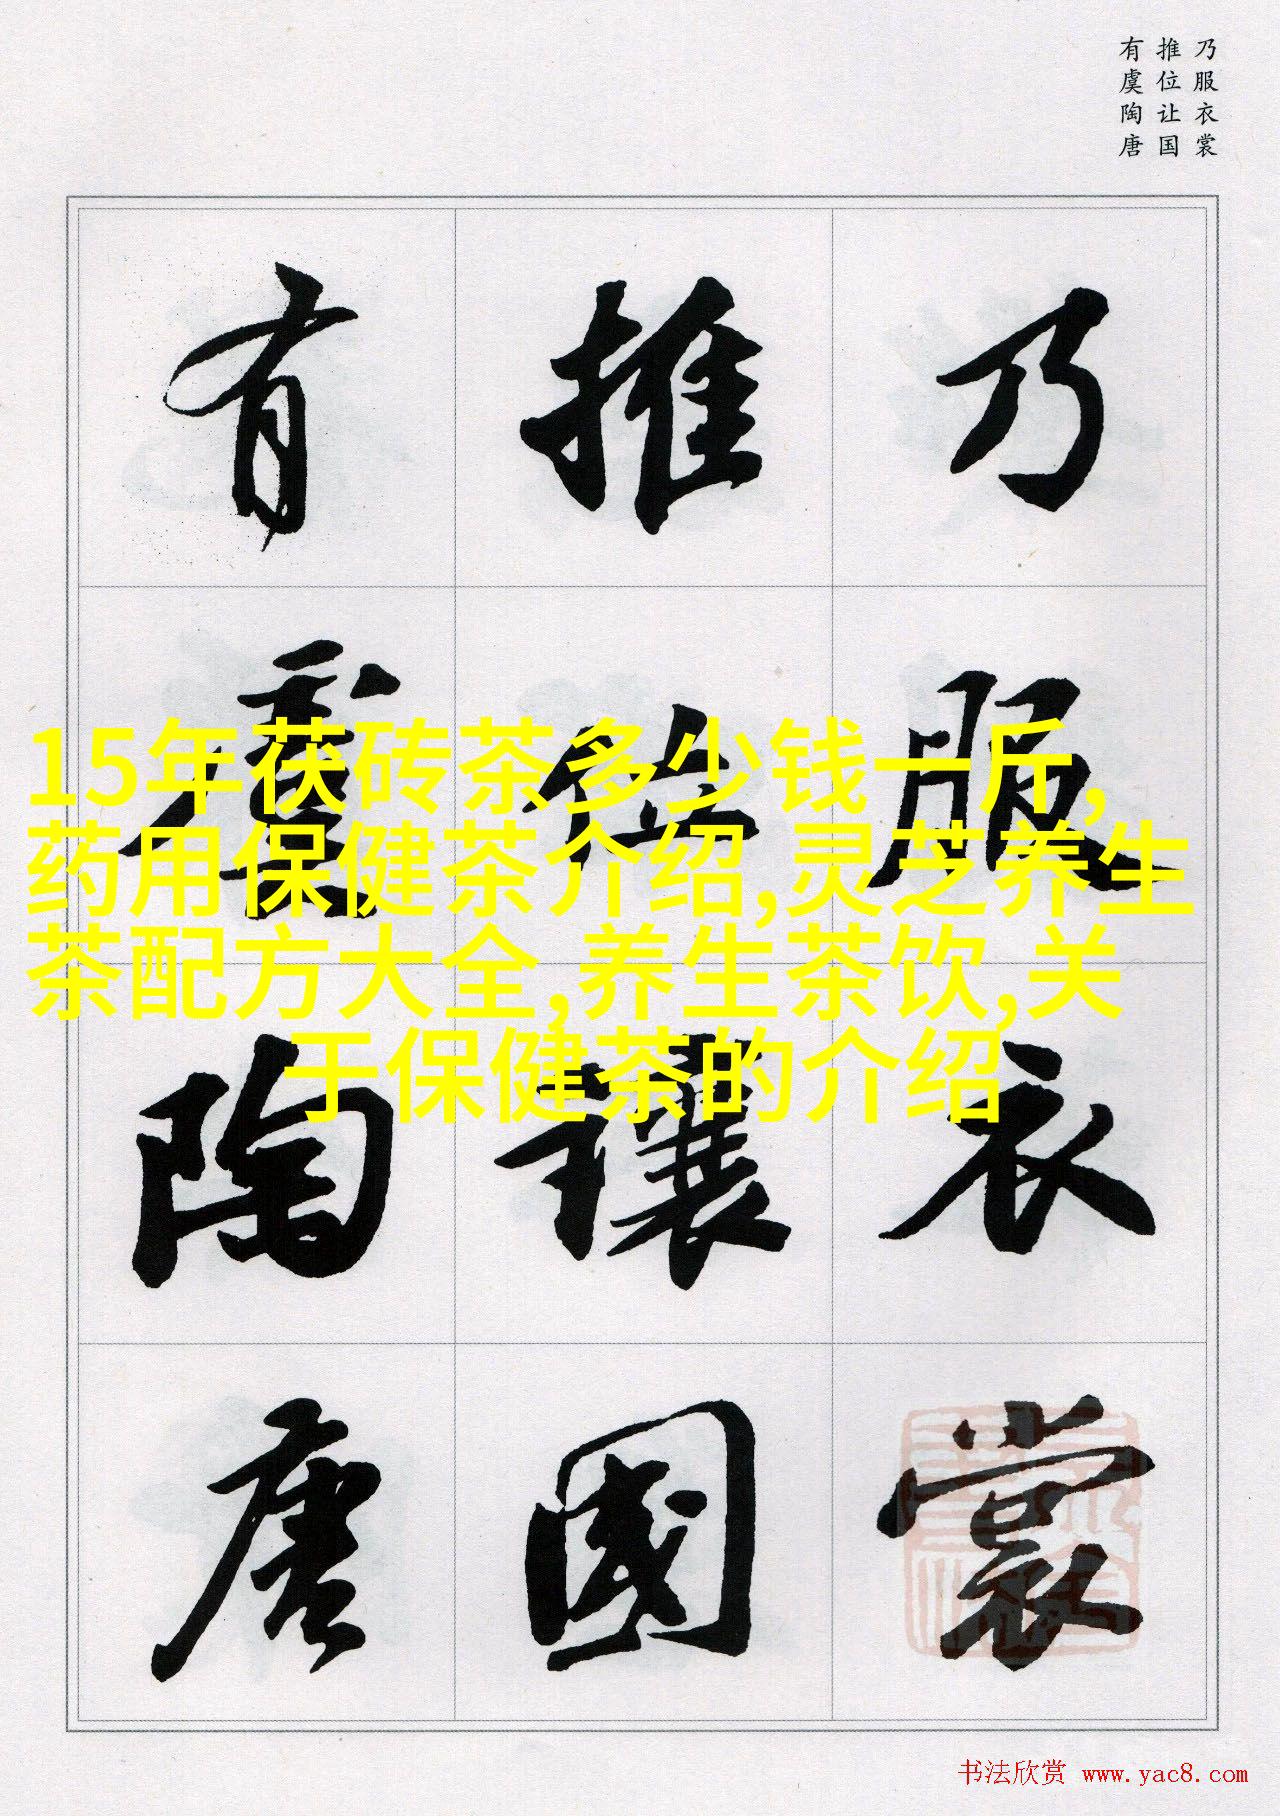 乃服衣裳
推位让国
有虞陶唐
乃服衣裳
推位讓國
有虞陶唐
15年茯砖茶多少钱一斤,
药用保健茶介绍,灵芝养生
茶配方大全,养生茶饮,关
于保健茶的介绍
书法欣赏 www.yac8.com